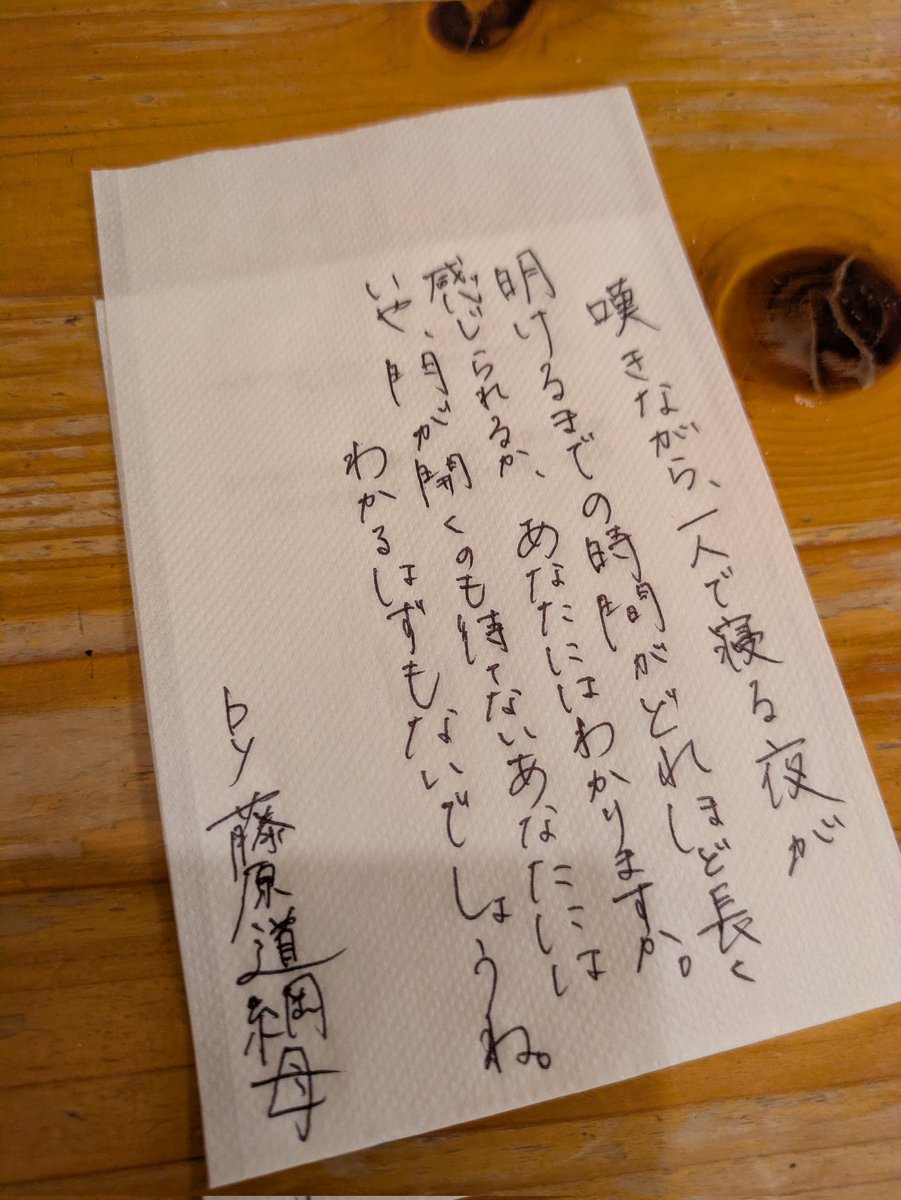 嘆きながら、一人で寝る夜が
明けるまでの時間がどれほど長く
感じられるか、あなたにはわかりますか。
いや、門が開くのも待てないあなたには
わかるはずもないでしょうね。
by 藤原道綱母